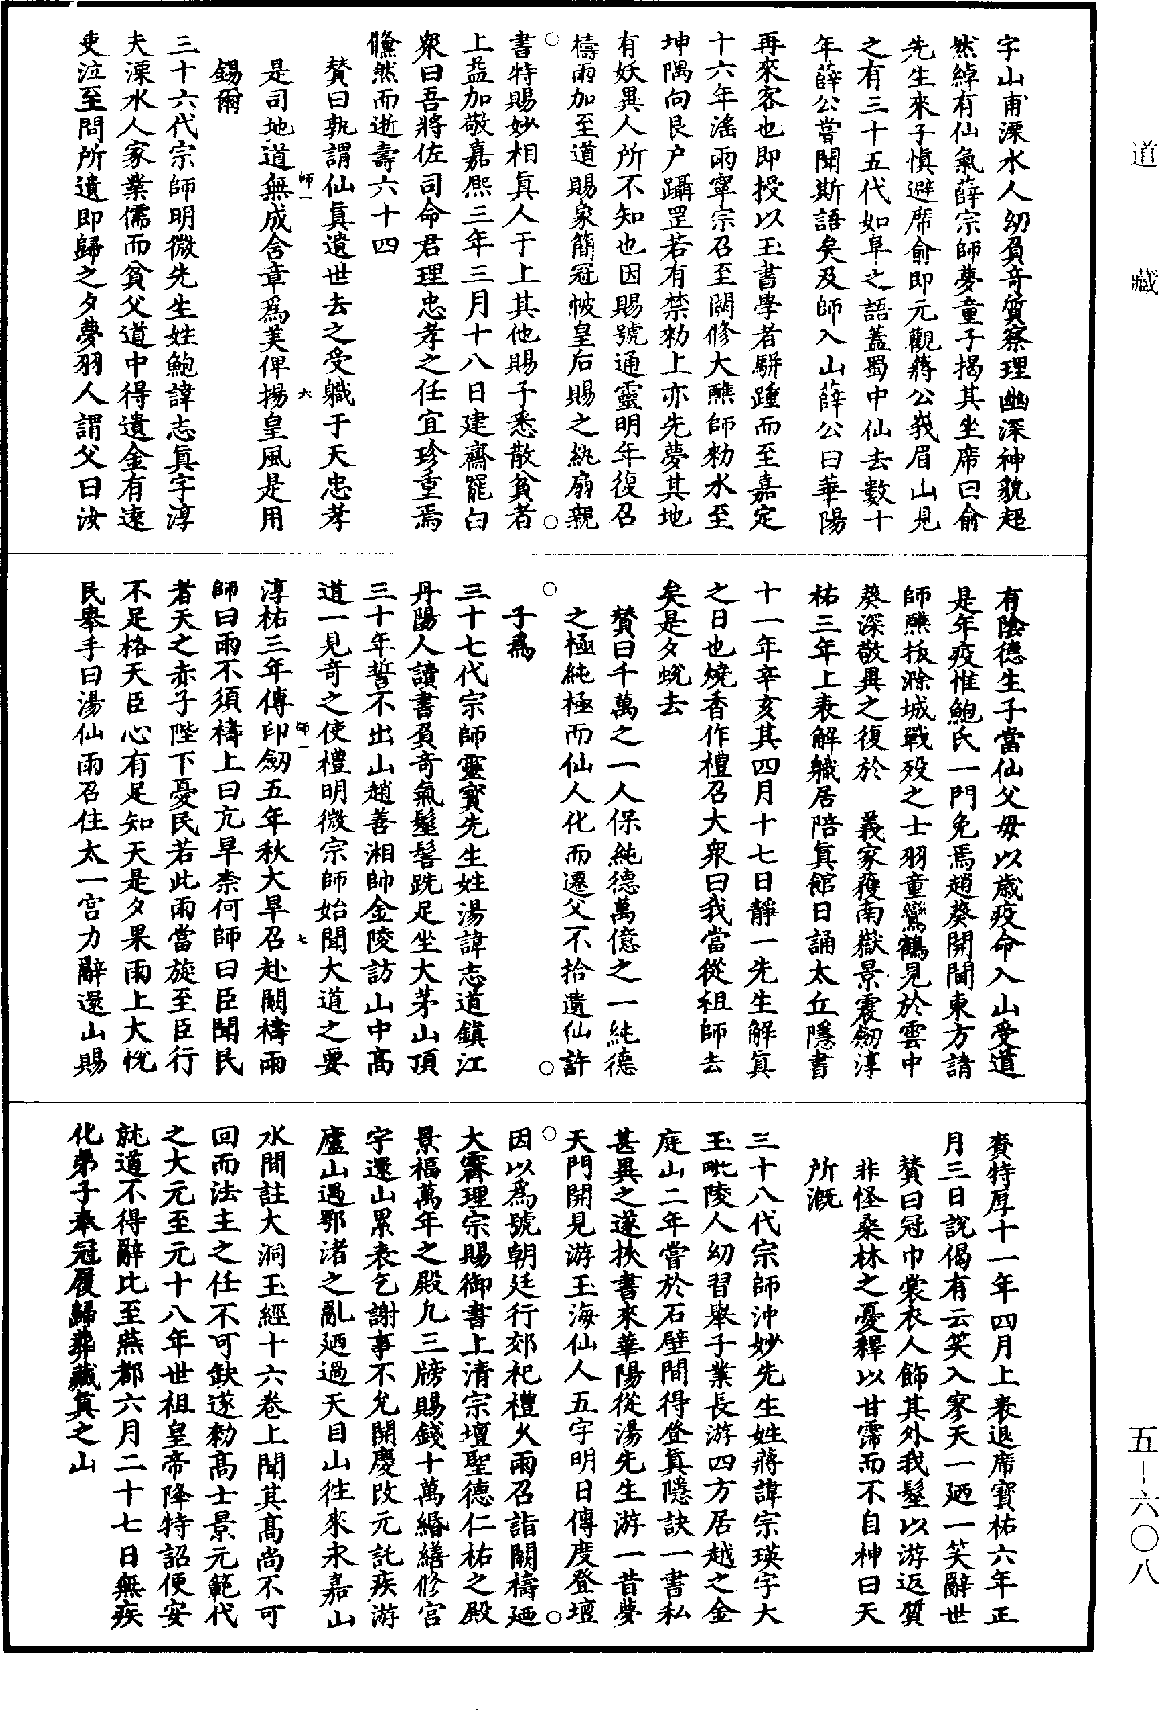 道藏
字山甫溧水人幼負奇質察理幽深神貌超
然綽有仙氣薛宗師夢童子揭其坐席曰俞
先生來子慎避席俞即元觀蔣公峩眉山見
之有三十五代如阜之語蓋蜀中仙去數十
年薛公嘗聞斯語矣及師入山薛公曰華陽
再來客也即授以玉書學者駢踵而至嘉定
十六年滛雨寧宗召至闕修大醮師勑水至
坤隅向艮户躡罡若有禁勑上亦先夢其地
有妖異人所不知也因賜號通靈明年復召
禱雨加至道賜象簡冠帔皇后賜之紈扇親
書特賜妙相真人于上其他賜予悉散貧者
上益加敬嘉熙三年三月十八日建齋罷白
衆曰吾將佐司命君理忠孝之任宜珍重焉
儵然而逝壽六十四
賛曰孰謂仙真遺世去之受職于天忠孝
是司地道無成含章爲美俾揚皇風是用
錫爾
師一
六
三十六代宗師明微先生姓鮑諱志真字淳
夫溧水人家業儒而貧父道中得遺金有遽
吏泣至問所遺即歸之夕夢羽人謂父曰汝
有陰德生子當仙父母以歲疫命入山受道
是年疫惟鮑氏一門免焉趙葵開閫東方請
師醮拔滁城戰殁之士羽童鸞鶴見於雲中
葵深敬異之復於 義家獲南嶽景震劒淳
祐三年上表解職居陪真館日誦太丘隱書
十一年辛亥其四月十七日靜一先生解真
之日也燒香作禮召大衆曰我當從祖師去
矣是夕蛻去
賛曰千萬之一人保純德萬億之一純德
之極純極而仙人化而遷父不拾遺仙許
子爲
三十七代宗師靈寳先生姓湯諱志道鎮江
丹陽人讀書負奇氣髽髻跣足坐大茅山頂
三十年誓不出山趙善湘帥金陵訪山中高
道一見奇之使禮明微宗師始聞大道之要
師一
七
淳祐三年傳印劒五年秋大旱召赴闕禱雨
師曰雨不須禱上曰亢旱柰何師曰臣聞民
者天之赤子陛下憂民若此雨當旋至臣行
不足格天臣心有足知天是夕果雨上大悅
民舉手曰湯仙雨召住太一宫力辭還山賜
賚特厚十一年四月上表退席寳祐六年正
月三日說偈有云笑入寥天一廼一笑辭世
賛曰冠巾裳衣人飾其外我髽以游返質
非怪桑林之憂釋以甘霈而不自神曰天
所溉
三十八代宗師沖妙先生姓蔣諱宗瑛字大
玉毗陵人幼習舉子業長游四方居越之金
庭山二年嘗於石壁間得登真隱訣一書私
甚異之遂挾書來華陽從湯先生游一昔夢
天門開見游玉海仙人五字明日傳度登壇
因以爲號朝廷行郊祀禮火雨召詣闕禱廼
大霽理宗賜御書上清宗壇聖德仁祐之殿
景福萬年之殿凢三牓賜錢十萬緡繕修宫
宇還山累表乞謝事不允開慶改元託疾游
廬山遇鄂渚之亂廼過天目山往來永嘉山
水間註大洞玉經十六卷上聞其高尚不可
回而法主之任不可缺遂勑高士景元範代
之大元至元十八年世祖皇帝降特詔便安
就道不得辭比至燕都六月二十七日無疾
化弟子奉冠履歸葬藏真之山
五－六〇八